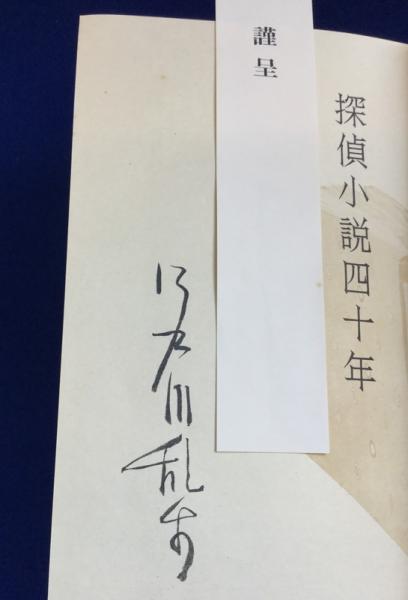 探偵小説四十年
謹呈
江戸川乱歩